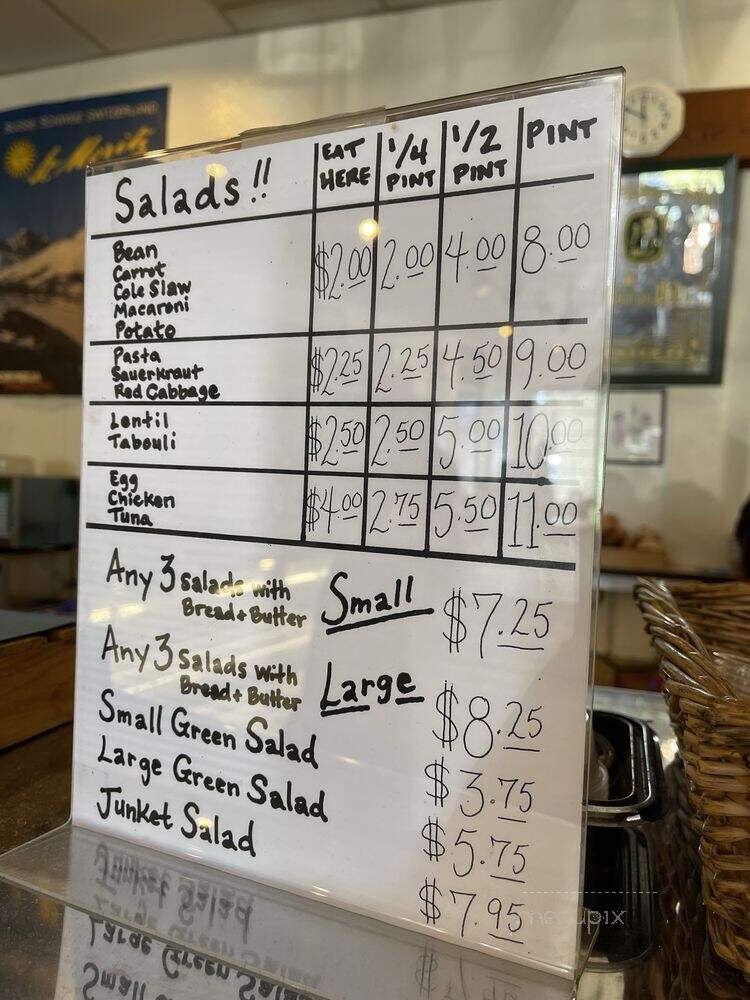 BUSSE SCHWEIZ SWITZERLAND
St. Moritz
Salads!! EAT HERE 1/4 PINT 1/2 PINT PINT
Bean
Carrot
Cole Slaw
Macaroni
Potato
$2.00 2.00 4.00 8.00
Pasta
Sauerkraut
Red Cabbage
$2.25 2.25 4.50 9.00
Lentil
Tabouli
$2.50 2.50 5.00 10.00
Egg
Chicken
Tuna
$4.00 2.75 5.50 11.00
Any 3 salads with Bread + Butter Small $7.25
Any 3 salads with Bread + Butter Large $8.25
Small Green Salad $3.75
Large Green Salad $5.75
Junket Salad $7.95
menupix